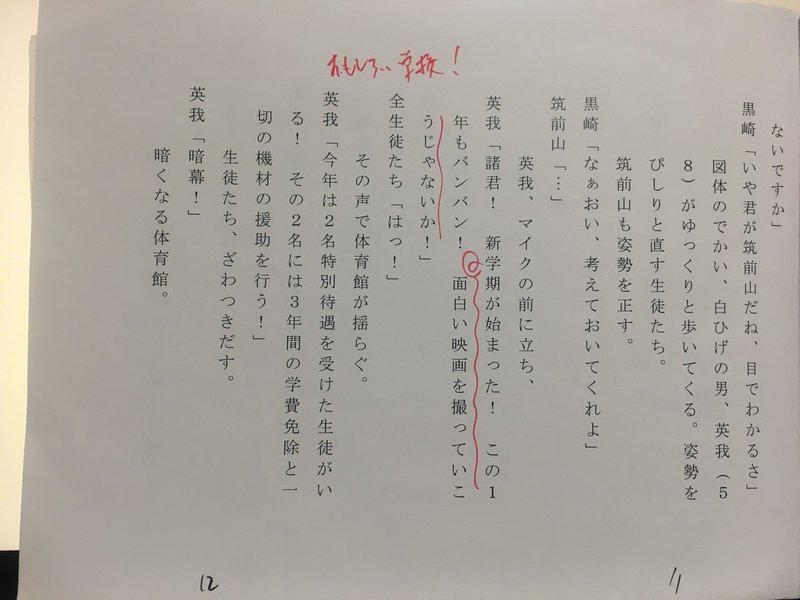 ないですか」
黒崎「いや君が筑前山だね、目でわかるさ」
図体のでかい、白ひげの男、英我(5
8)がゆっくりと歩いてくる。姿勢を
ぴしりと直す生徒たち。
筑前山も姿勢を正す。
黒崎「なぁおい、考えておいてくれよ」
筑前山「…」
英我、マイクの前に立ち、
英我「諸君! 新学期が始まった! この1
年もバンバン! 面白い映画を撮っていこ
うじゃないか!」
全生徒たち「はっ!」
その声で体育館が揺らぐ。
英我「今年は2名特別待遇を受けた生徒がい
る! その2名には3年間の学費免除と一
切の機材の援助を行う!」
生徒たち、ざわつきだす。
英我「暗幕!」
暗くなる体育館。
おもしろい学校!
11
12